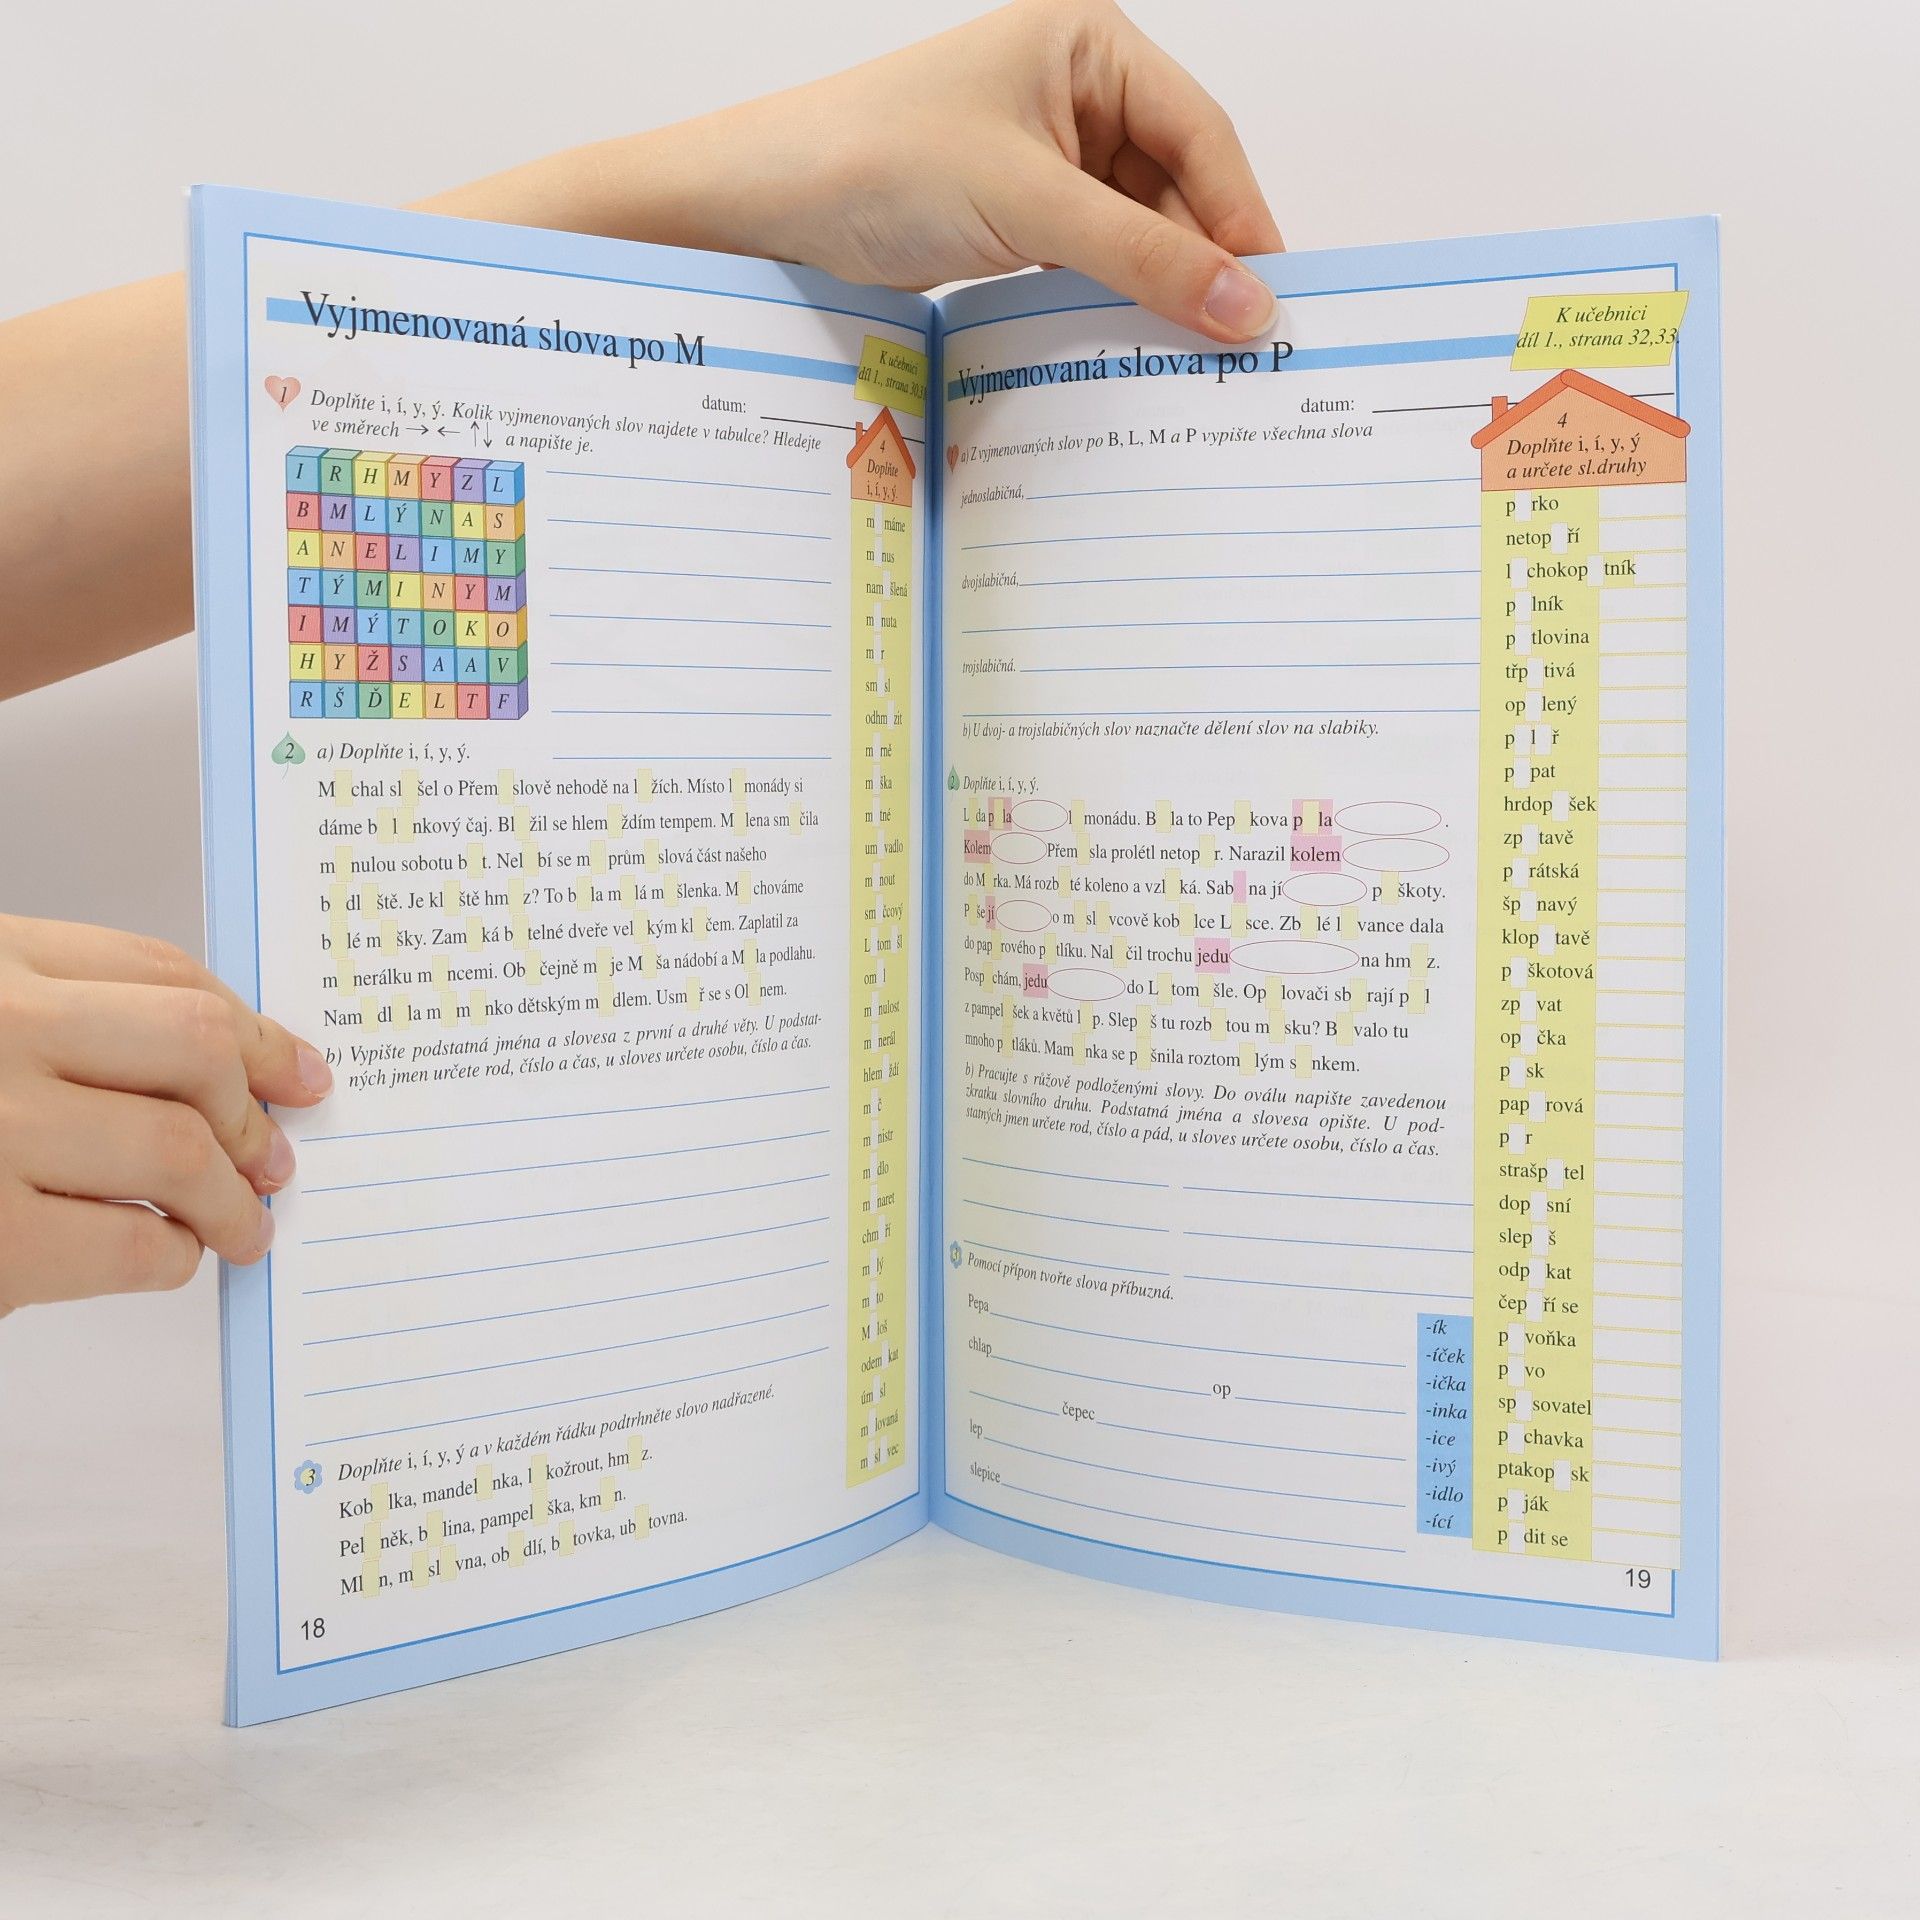 Vyjmenovaná slova po M
K učebnici
díl 1., strana 30,3
datum:
1 Doplňte i, í, y, ý. Kolik vyjmenovaných slov najdete v tabulce? Hledejte
ve směrech → ← ↑↓ a napište je.
I R H M Y Z L
B M L Ý N A S
A N E L I M Y
T Ý M I N Y M
I M Ý T O K O
H Y Ž S A A V
R Š Ď E L T F
2 a) Doplňte i, í, y, ý.
M chal sl šel o Přem slově nehodě na l žích. Místo l monády si
dáme b l nkový čaj. Bl žil se hlem ždím tempem. M lena sm čila
m nulou sobotu b t. Nel bí se m prům slová část našeho
b dl ště. Je kl ště hm z? To b la m lá m šlenka. M chováme
b lé m šky. Zam ká b telné dveře vel kým kl čem. Zaplatil za
m nerálku m ncemi. Ob čejně m je M ša nádobí a M la podlahu.
Nam dl la m m nko dětským m dlem. Usm ř se s Ol nem.
b) Vypište podstatná jména a slovesa z první a druhé věty. U podstat-
ných jmen určete rod, číslo a čas, u sloves určete osobu, číslo a čas.
3 Doplňte i, í, y, ý a v každém řádku podtrhněte slovo nadřazené.
Kob lka, mandel nka, l kožrout, hm z.
Pel něk, b lina, pampel ška, km n.
Ml n, m sl vna, ob dlí, b tovka, ub tovna.
18
4
Doplňte
i, í, y, ý.
m máme
m nus
nam šlená
m nuta
m r
sm sl
odhm zit
m rně
m ška
m tné
um vadlo
m nout
sm čcový
L tom šl
om l
m nulost
m nerál
hlem ždí
m č
m nistr
m dlo
m naret
chm ří
m lý
m to
M loš
odem kat
úm sl
m lovaná
m sl vec
Vyjmenovaná slova po P
K učebnici
díl 1., strana 32,33.
datum:
1 a) Z vyjmenovaných slov po B, L, M a P vypište všechna slova
jednoslabičná,
dvojslabičná,
trojslabičná.
b) U dvoj- a trojslabičných slov naznačte dělení slov na slabiky.
2 Doplňte i, í, y, ý.
L da p la l monádu. B la to Pep kova p la .
Kolem Přem sla prolétl netop r. Narazil kolem
do M rka. Má rozb té koleno a vzl ká. Sab na jí p škoty.
P še jí o m sl vcově kob lce L sce. Zb lé l vance dala
do pap rového p tlíku. Nal čil trochu jedu na hm z.
Posp chám, jedu do L tom šle. Op lovači sb rají p l
z pampel šek a květů l p. Slep š tu rozb tou m sku? B valo tu
mnoho p tláků. Mam nka se p šnila roztom lým s nkem.
b) Pracujte s růžově podloženými slovy. Do oválu napište zavedenou
zkratku slovního druhu. Podstatná jména a slovesa opište. U pod-
statných jmen určete rod, číslo a pád, u sloves určete osobu, číslo a čas.
3 Pomocí přípon tvořte slova příbuzná.
Pepa
chlap
op
čepec
lep
slepice
-ík
-íček
-ička
-inka
-ice
-ivý
-idlo
-ící
4
Doplňte i, í, y, ý
a určete sl.druhy
p rko
netop ří
l chokop tník
p lník
p tlovina
třp tivá
op lený
p l ř
p pat
hrdop šek
zp tavě
p rátská
šp navý
klop tavě
p škotová
zp vat
op čka
p sk
pap rová
p r
strašp tel
dop sní
slep š
odp kat
čep ří se
p voňka
p vo
sp sovatel
p chavka
ptakop sk
p ják
p dit se
19